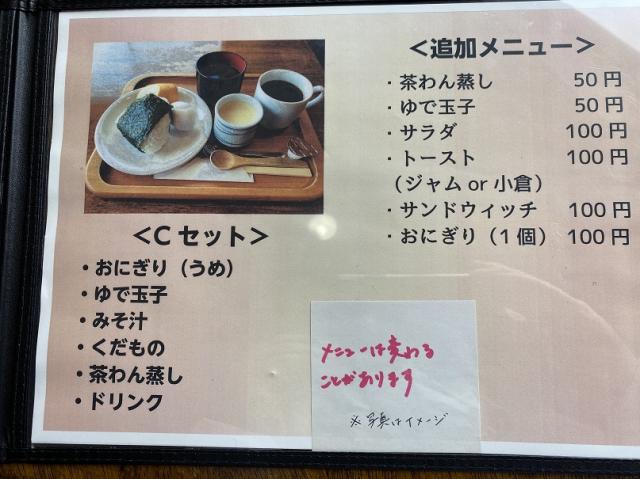 ＜Cセット＞
・おにぎり（うめ）
・ゆで玉子
・みそ汁
・くだもの
・茶わん蒸し
・ドリンク
＜追加メニュー＞
・茶わん蒸し 50円
・ゆで玉子 50円
・サラダ 100円
・トースト 100円
（ジャム or 小倉）
・サンドウィッチ 100円
・おにぎり（1個） 100円
メニューは変わる
ことがあります
※写真はイメージ